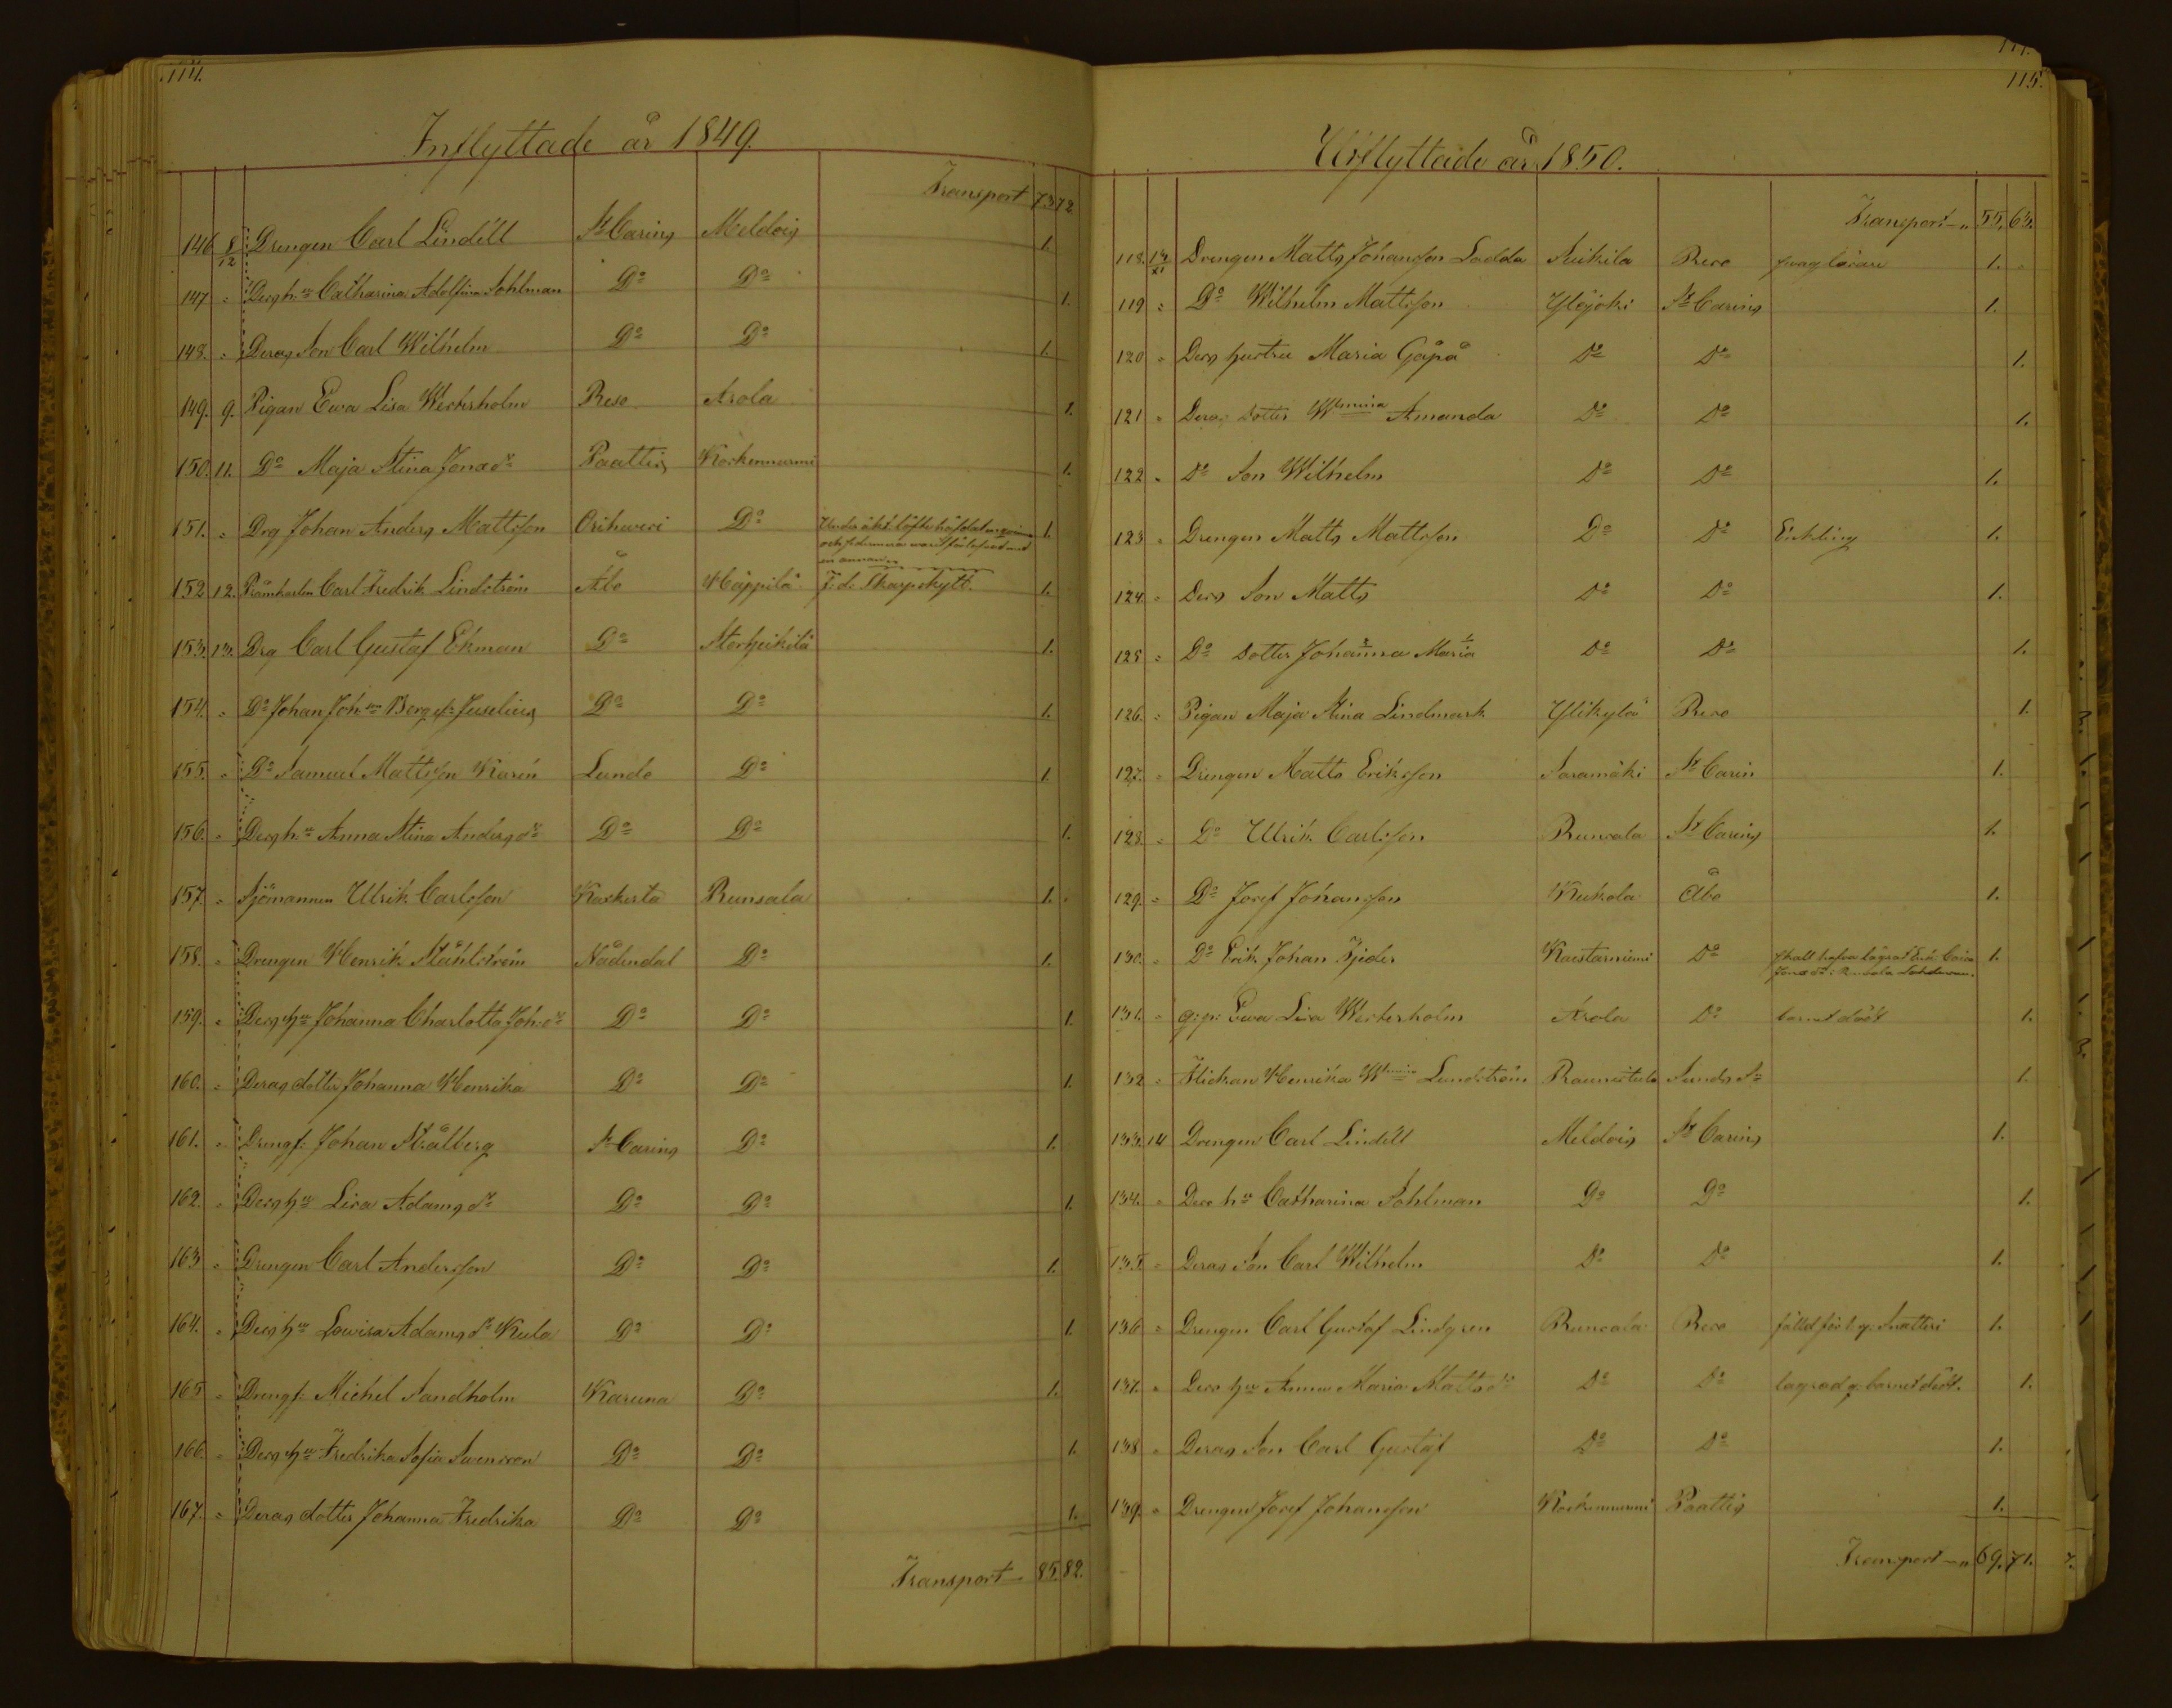 114.
Inflyttade år 1849.
Transport 73 72
146 8/12 Drengen Carl Lindell St Carins Meldois 1.
147 " Desh:u Catharina Adolfina Sohlman Do Do 1.
148. " Deras Son Carl Wilhelm Do Do 1.
149. 9. Pigan Ewa Lisa Westerholm Reso Arola 1.
150. 11. Do Maja Stina Jonasdr Paattis Kockennurmi 1.
151. " Drg Johan Anders Mattsson Orihweri Do 1.
152 12. Carl Fredrik Lindström Åbo Häppilä f: d: Skarpskytt. 1.
153. 13. Drg Carl Gustaf Ekman Do Storheikilä 1.
154. " Do Johan Joh:son Berg el: Juselius Do Do 1.
155. " Do Samuel Mattsson Karén Lundo Do 1.
156. " Desh:u Anna Stina Andersdr Do Do 1.
157. " Sjömannen Ulrik Carlsson Kakskerta Runsala 1.
158. " Drengen Henrik Ståhlström Nådendal Do 1.
159. " Des Hu Johanna Charlotta Joh:dr Do Do 1.
160. " Deras dotter Johanna Henrika Do Do 1.
161. " Drengf: Johan Stålberg St Carins Do 1.
162. " Des hu Lisa Adamsdr Do Do 1.
163 " Drengen Carl Andersson Do Do 1.
164. " Des hu Lowisa Adamsdr Kula Do Do 1.
165 " Drengf: Michel Sandholm Karuna Do 1.
166. " Des Hu Fredrika Sofia Swensson Do Do 1.
167. " Deras dotter Johanna Fredrika Do Do 1.
Transport 85. 82.
115.
Utflyttade år 1850.
Transport 55. 63.
118. Drengen Matts Johansson Ladda Reso swag läsare 1.
119 " Do Wilhelm Mattsson Ylöjoki St Carins 1.
120 " Des hustru Maria Gåpå Do Do 1.
121 " Deras dotter Wilhelmina Amanda Do Do 1.
122 " Do Son Wilhelm Do Do 1.
123 " Drengen Matts Mattsson Do Do Enkling 1.
124. " Des Son Matts Do Do 1.
125 " Do dotter Johanna Maria Do Do 1.
126. " Pigan Maja Stina Lindmark Ylikylä Reso 1.
127. " Drengen Matts Eriksson Saramäki St Carin 1.
128. " Do Ulrik Carlsson Runsala St Carins 1.
129. " Do Josef Johansson Kukola Åbo 1.
130. " Do Erik Johan Fjeder Kaestarniemi Do 1.
131. " q:p: Ewa Lisa Westerholm Arola Do barnet dödt 1.
132 " Flickan Henrika Wmina Lundström Raunistula Sunds Sn 1.
133. 14 Drengen Carl Lindell Meldois St Carins 1.
134. " Des hu Catharina Sohlman Do Do 1.
135. " Deras Son Carl Wilhelm Do Do 1.
136 " Drengen Carl Gustaf Lindgren Runsala Reso fälld för 1:g. Snatteri 1.
137. " Des hu Anna Maria Mattsdr Do Do lägrad g. barnet dödt. 1.
138 " Deras Son Carl Gustaf Do Do 1.
139. " Drengen Josef Johansson Kockennurmi Paattis 1.
Transport 69. 71.